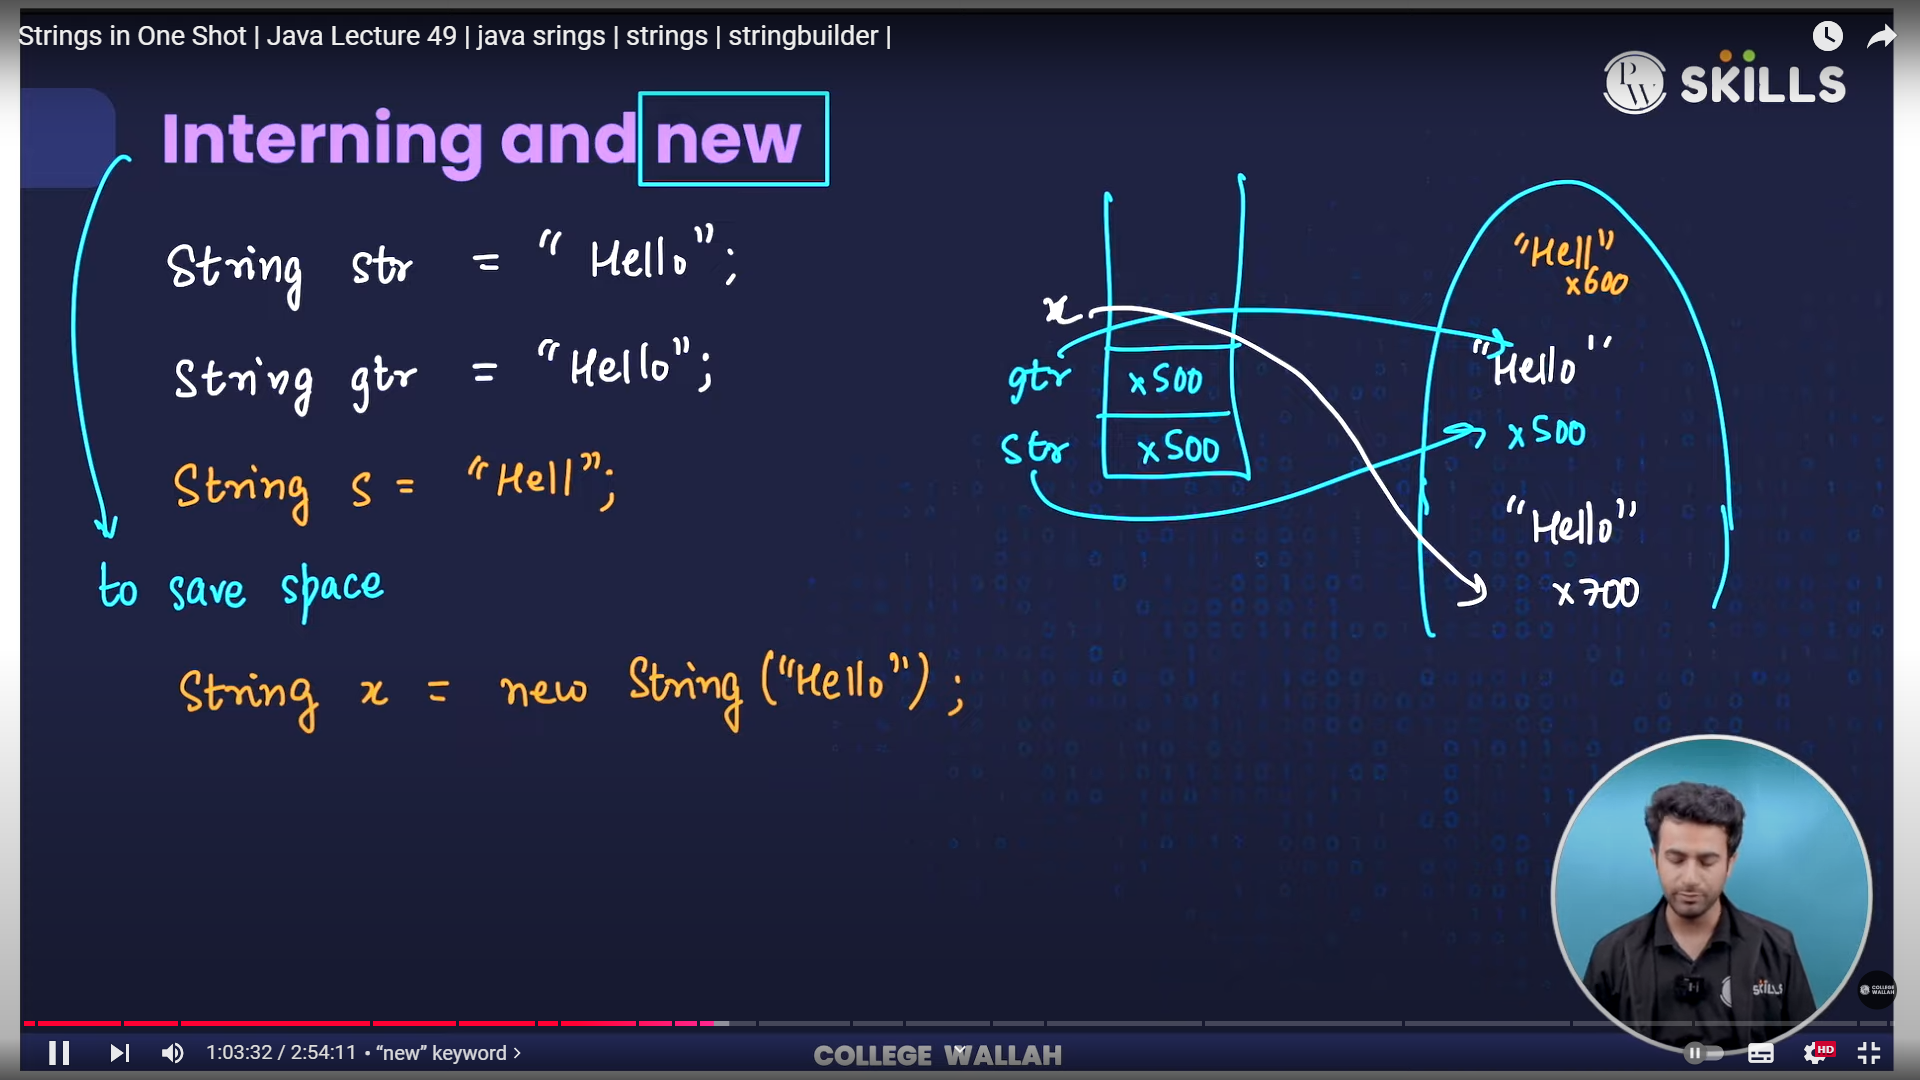 Strings in One Shot | Java Lecture 49 | java srings | strings | stringbuilder |
PW SKILLS
Interning and new
String str = "Hello";
String gtr = "Hello";
String s = "Hell";
to save space
String x = new String ("Hello");
x
gtr x500
str x500
"Hell"
x600
"Hello"
x500
"Hello"
x700
SKILLS
COLLEGE WALLAH
1:03:32 / 2:54:11 • “new” keyword >
COLLEGE WALLAH
HD